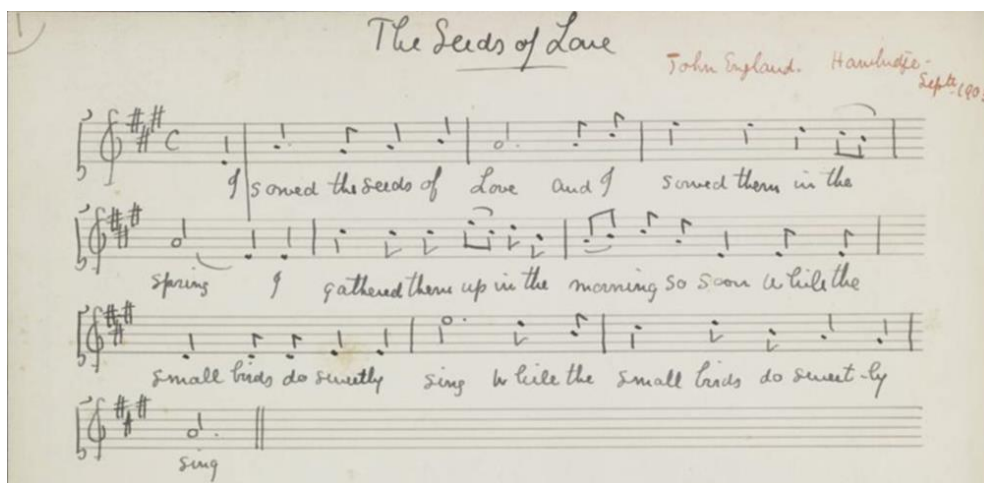 The Seeds of Love
John England. Hambridge.
Sept.
C
I sowed the seeds of Love and I sowed them in the
spring I gathered them up in the morning so soon while the
small birds do sweetly sing While the small birds do sweet-ly
sing